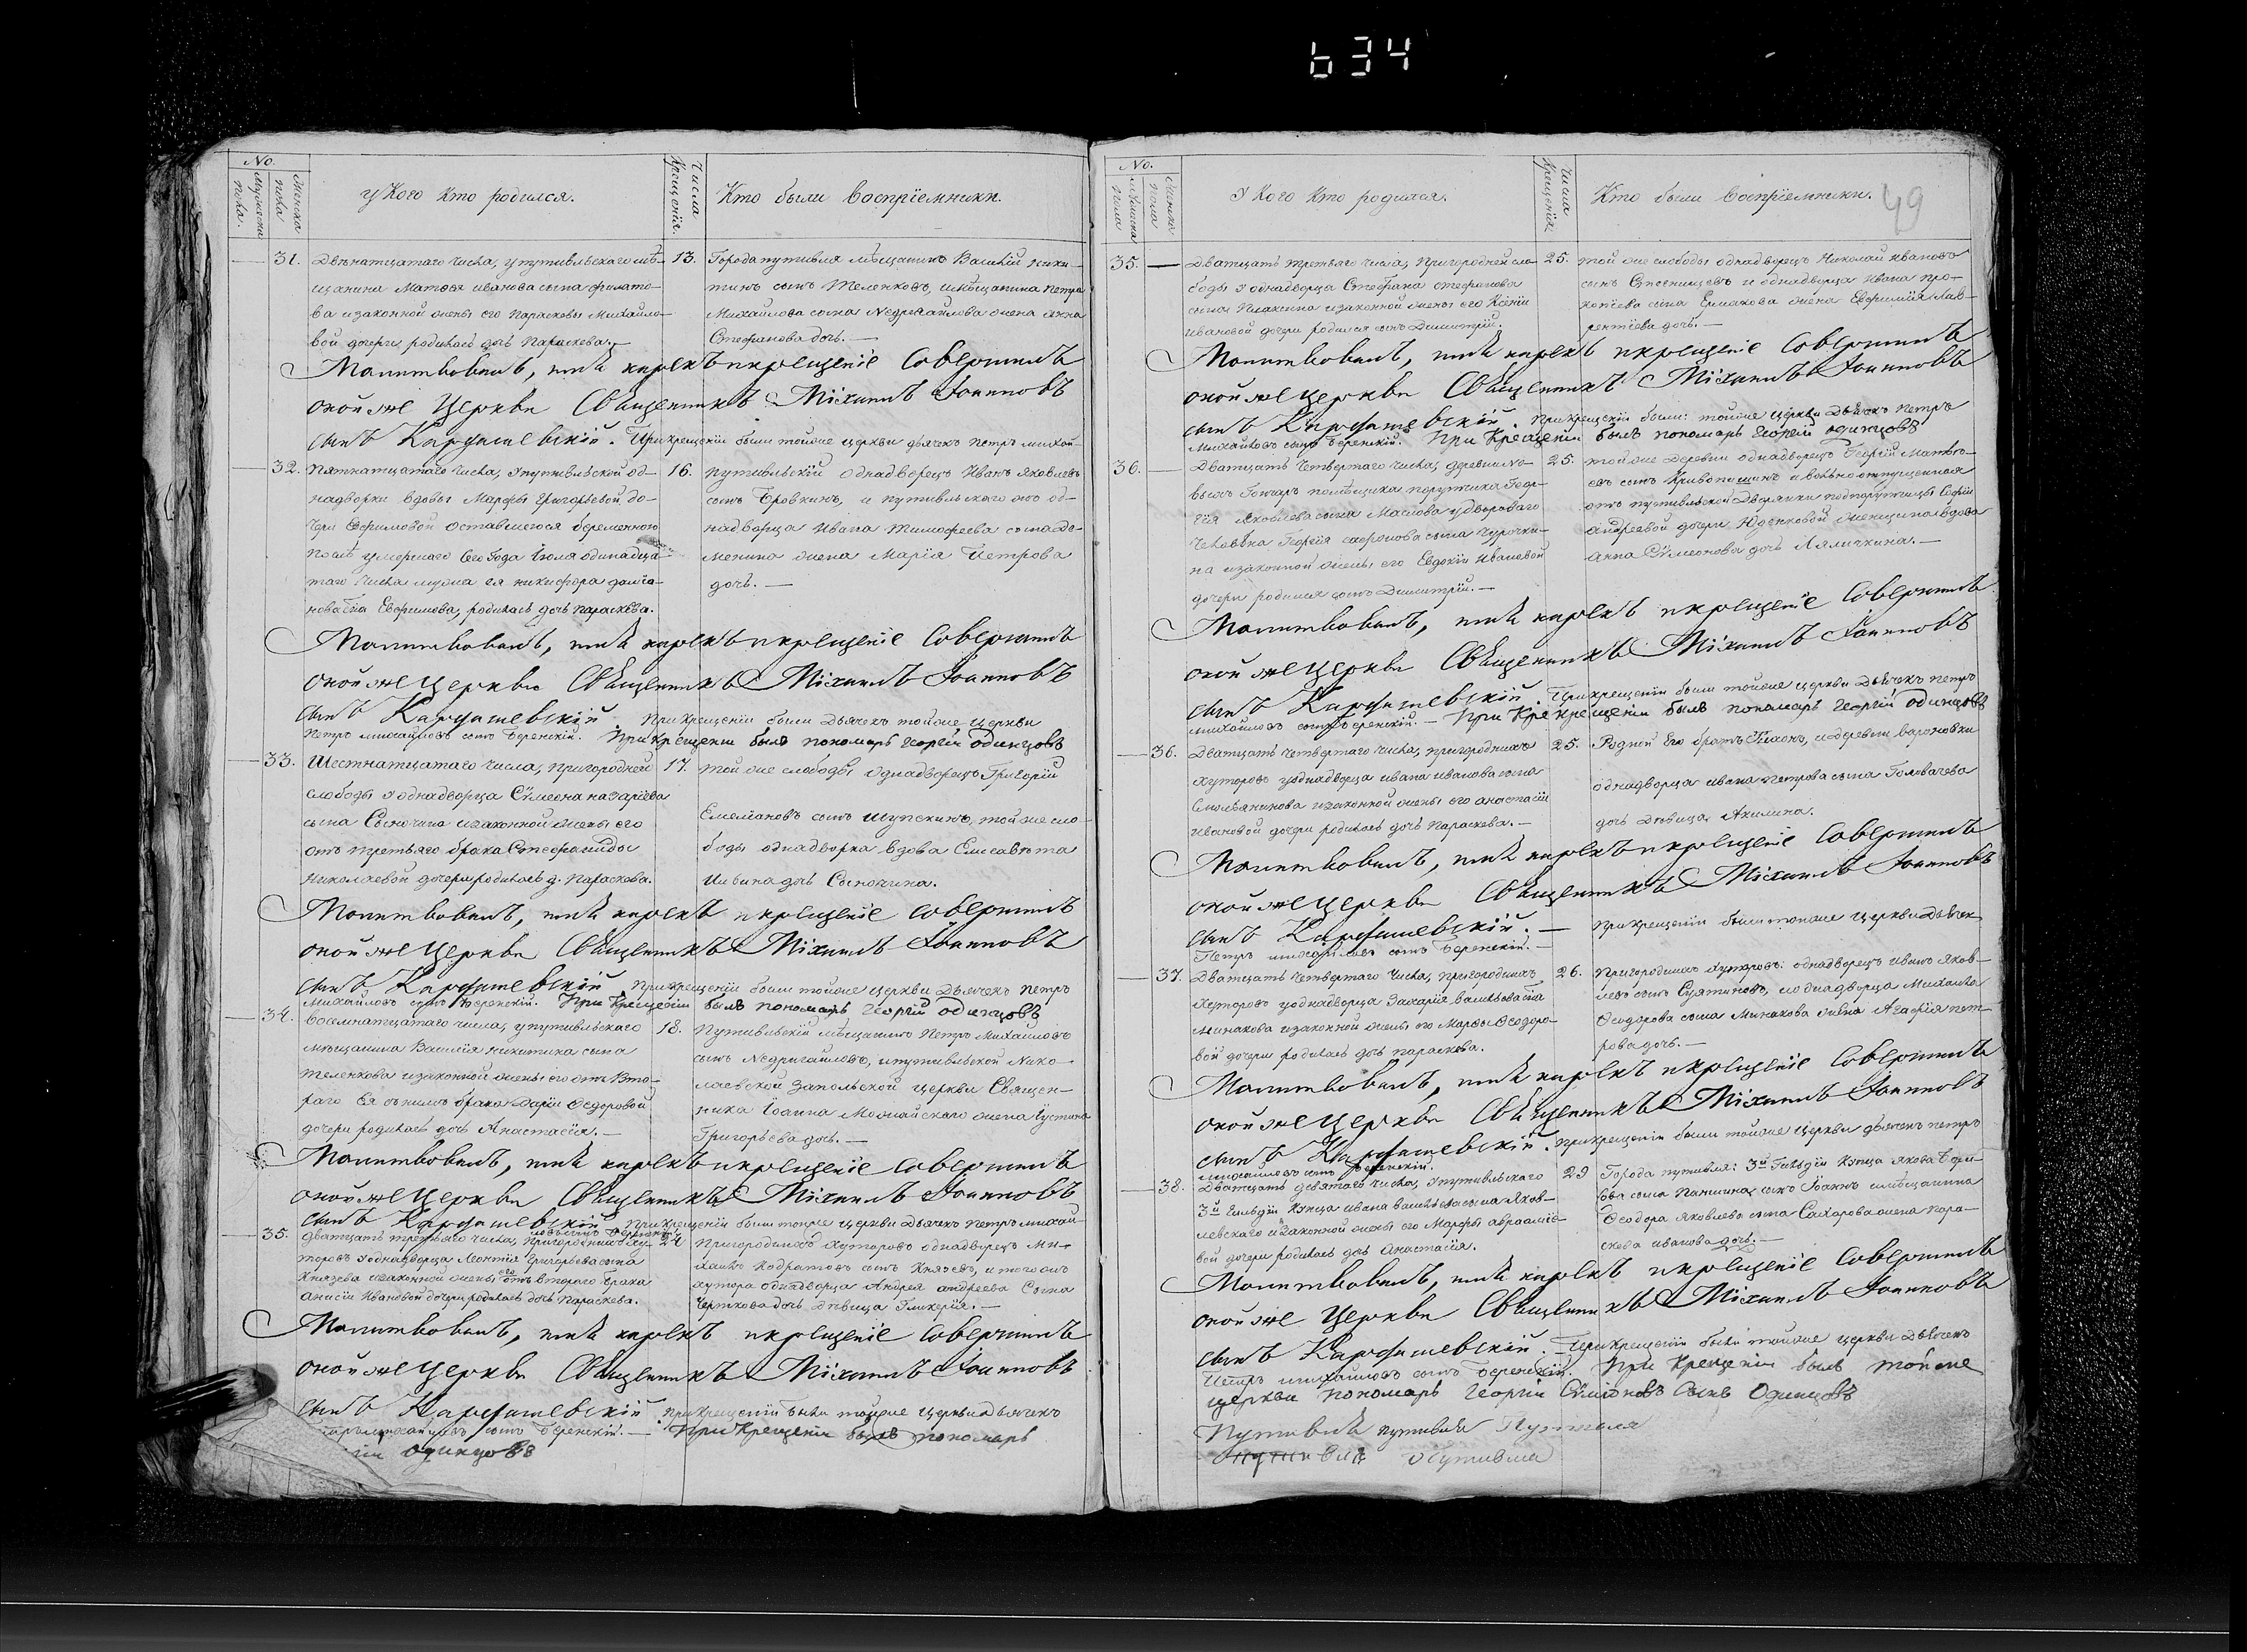 634
No.
Мужеска пола.
Женска пола
У Кого кто родился.
Числа Крещенія.
Кто были Воспріемники.
31.
Двенатцатаго числа, у путивльскаго мѣ-
щанина Матвея иванова сына филато-
ва изаконной жены его Парасковьи Михайло-
вой дочери родилась дочь Параскева.—
13.
Города путивля мѣщанинъ Василій ники-
тинъ сынъ Теленковъ, имѣщанина петра
Михайлова сына Недригайлова жена Анна
Стефанова дочь.—
Молитвовалъ, имя нарекъ икрещеніе Совершилъ
оной же Церкви Священникъ Міхаилъ Іоанновъ
сынъ Карфашевскій. При крещеніи были тойже церкви дьячекъ петръ михай-
32.
Пятнатцатаго числа, упутивльской од-
надворки вдовы Марфы Григорьевой до-
чери Ефимовой оставшегося беременною
послѣ умершаго Сего Года Іюля одинадца-
таго числа мужа ея никифора
Ефимова, родилась дочь параскева.
16.
путивльскій однадворецъ Иванъ Яковлевъ
сынъ Бровкинъ, и путивльскаго жъ од-
надворца Ивана Тимофеева сына
жена Марія Петрова
дочь.—
Молитвовалъ, имя нарекъ икрещеніе Совершилъ
оной же Церкви Священникъ Міхаилъ Іоанновъ
сынъ Карфашевскій. При крещеніи были Дьячекъ тойже церкви
Петръ михайловъ сынъ Беренскій. При крещеніи былъ пономарь Георгій одинцовъ
33.
Шестнатцатаго числа, Пригородней
слободы уоднадворца Сѵмеона назаріева
сына изаконной жены его
отъ третьяго брака Стефаниды
Николаевой дочери родилась д. Параскева.
17.
той же слободы однадворецъ Григорій
Емеліановъ сынъ Шупскинъ, той же сло-
боды однадворка вдова Елисавета
дочь
Молитвовалъ, имя нарекъ икрещеніе Совершилъ
оной же Церкви Священникъ Міхаилъ Іоанновъ
сынъ Карфашевскій. При крещеніи были тойже церкви Дьячекъ петръ
Михайловъ сынъ Беренскій. При крещеніи былъ пономарь Георгій одинцовъ
34.
Восемнатцатаго числа, у путивльскаго
мѣщанина Василія никитина сына
Теленкова изаконной жены его отъ вто-
раго Ея сънимъ брака Даріи Федоровой
дочери родилась дочь Анастасія.—
18.
Путивльскій мѣщанинъ Петръ Михаиловъ
сынъ Недригаиловъ, ипутивльской Нико-
лаевской Запольской церкви Священ-
ника Іоанна Можайскаго жена Іустина
Григорьева дочь.—
Молитвовалъ, имя нарекъ икрещеніе Совершилъ
оной же Церкви Священникъ Міхаилъ Іоанновъ
сынъ Карфашевскій При крещеніи были тойже церкви Дьячекъ петръ михай-
ловъ сынъ Беренскій
35.
Дватцать третьяго числа, пригороднихъ ху-
торовъ уоднадворца Леонтія Григорьева сына
Князева изаконной жены его отъ втораго брака
Анисіи Ивановой дочери родилась дочь Параскева.
24
Пригороднихъ хуторовъ однадворецъ Ми-
хаилъ Кодратовъ сынъ Князевъ, и тогожъ
хутора однадворца Андрея андреева Сына
Черткова дочь девица Гликерія.—
Молитвовалъ, имя нарекъ икрещеніе Совершилъ
оной же Церкви Священникъ Міхаилъ Іоанновъ
сынъ Карфашевскій. При крещеніи были тойже церкви дьячекъ
михайловъ сынъ Беренскій.— При крещеніи былъ пономарь
одинцовъ
49
No.
Мужеска пола
Женска пола
У Кого кто родился.
Числа Крещенія
Кто были Воспріемники.
35.
Дватцать третьяго числа, Пригородней сло-
боды уоднадворца Стефана стефанова
сына изаконной жены его Ксеніи
Ивановой дочери родился сынъ Димитрій.
25.
той же слободы однадворецъ Николай ивановъ
сынъ и однадворца Ивана про-
копіева сына Ермакова жена Евфимія Лав-
рентіева дочь.—
Молитвовалъ, имя нарекъ икрещеніе Совершилъ
оной же Церкви Священникъ Міхаилъ Іоанновъ
сынъ Карфашевскій. При крещеніи были: тойже церкви Дьячекъ петръ
михайловъ сынъ Беренскій. При Крещеніи былъ пономарь Георгій одинцовъ
36.
Дватцать Четвертаго числа, деревни Но-
выхъ Гончаръ помѣщика порутчика Геор-
гія Яковлева сына Маслова удвороваго
человѣка Георгія сафронова сына Чурочки-
на изаконной жены его Евдокіи Ивановой
дочери родился сынъ Димитрій.—
25.
той же Деревни однадворецъ Георгій Матве-
евъ сынъ Кривопишинъ и вольно отпущенная
отъ путивльской Дворянки подпорутчицы Софіи
андреевой дочери Юденковой женщина вдова
анна Сѵмеонова дочь Ляличкина.—
Молитвовалъ, имя нарекъ икрещеніе Совершилъ
оной же Церкви Священникъ Міхаилъ Іоанновъ
сынъ Карфашевскій. При крещеніи были тойже церкви Дьячекъ петръ
михайловъ сынъ Беренскій.— При Крекрещеніи былъ пономарь Георгій одинцовъ
36.
Дватцать Четвертаго числа, пригороднихъ
хуторовъ уоднадворца ивана иванова сына
Смольянинова изаконной жены его анастасіи
ивановой дочери родилась дочь Параскева.—
25.
Родной Его братъ и деревни вороновки
однадворца ивана петрова сына Головачева
дочь Девица Акилина.
Молитвовалъ, имя нарекъ икрещеніе Совершилъ
оной же Церкви Священникъ Міхаилъ Іоанновъ
сынъ Карфашевскій.— При крещеніи были тойже церкви Дьячекъ
Петръ михайловъ сынъ Беренскій.—
37.
Дватцать Четвертаго числа, пригороднихъ
хуторовъ уоднадворца Захарія васильева сына
Минакова изаконной жены его Марфы Феодоро-
вой дочери родилась дочь параскева.
26.
Пригороднихъ хуторовъ: однадворецъ иванъ Яков-
левъ сынъ и однадворца Михаила
Феодорова сына Минакова жена Агафія пет-
рова дочь.—
Молитвовалъ, имя нарекъ икрещеніе Совершилъ
оной же Церкви Священникъ Міхаилъ Іоанновъ
сынъ Карфашевскій. При крещеніи были тойже церкви дьячекъ петръ
михайловъ сынъ Беренскій.
38.
Дватцать девятаго числа, упутивльскаго
3й Гильдіи Купца ивана васильева сына Яков-
левскаго изаконной жены его Марфы аврааміе-
вой дочери родилась дочь Анастасія.
29
Города путивля: 3й Гильдіи Купца Якова
сына сынъ Іоанъ имѣщанина
Феодора Яковлева сына Сахарова жена пара-
скева иванова дочь.—
Молитвовалъ, имя нарекъ икрещеніе Совершилъ
оной же Церкви Священникъ Міхаилъ Іоанновъ
сынъ Карфашевскій.— При крещеніи были тойже церкви Дьячекъ
Петръ михайловъ сынъ Беренскій. При Крещеніи былъ тойже
церкви пономарь Георгій Сѵмеоновъ Сынъ Одинцовъ
Путивля путивля
Путивля